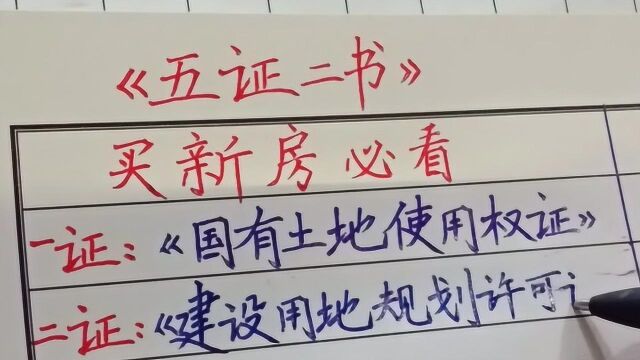 《五证二书》
买新房必看
一证：《国有土地使用权证》
二证：《建设用地规划许可